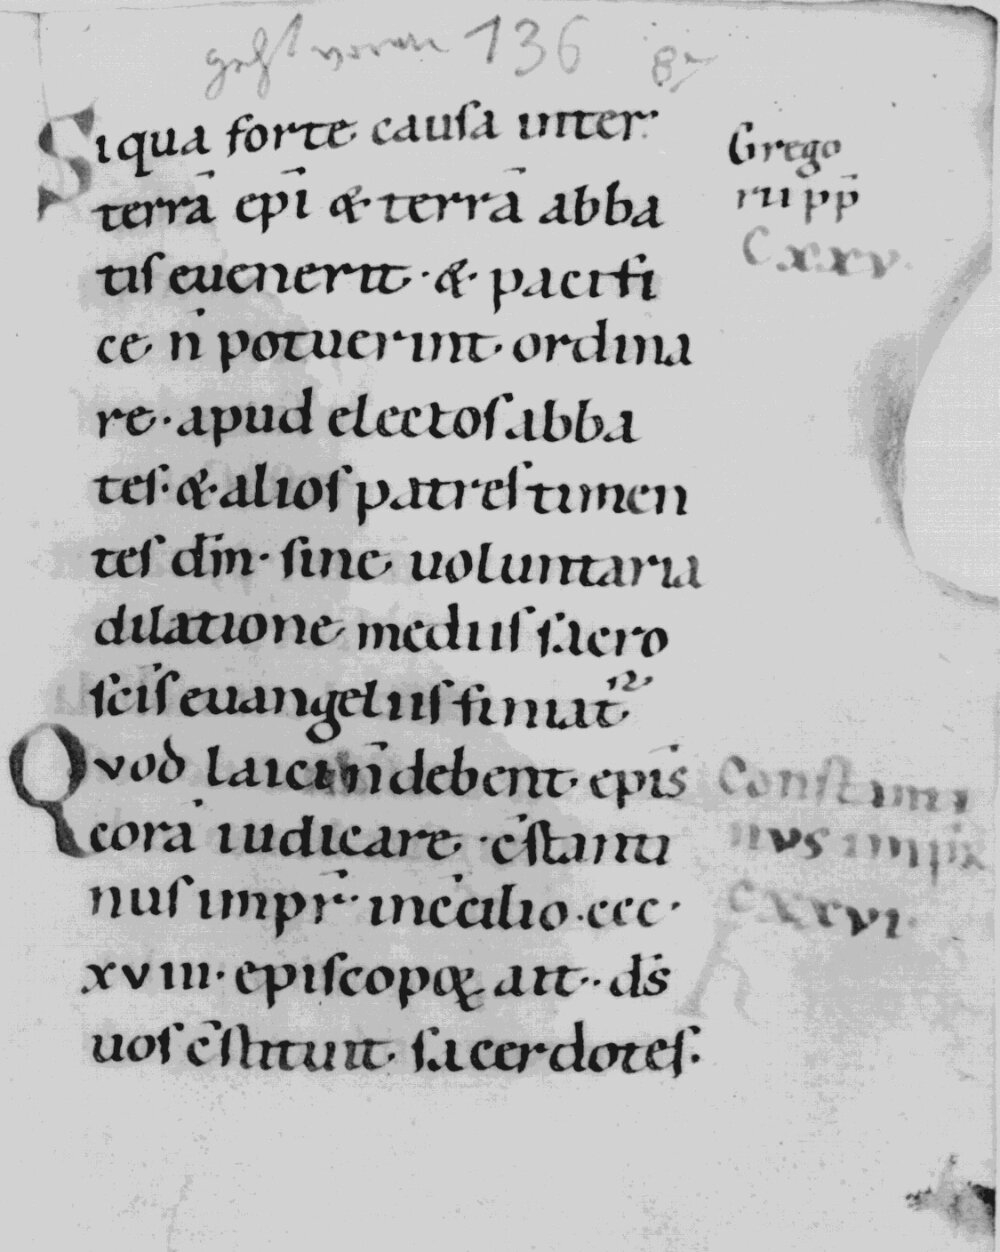 geht voran 136 8r
Siqua forte causa inter
terrā epī & terrā abba
tiſ euenerit · & pacifi
ce n̄ potuerint ordina
re · apud electoſ abba
teſ · & alioſ patreſ timen
teſ dm̄ · ſine uoluntaria
dilatione mediiſ ſacro
ſc̄iſ euangeliiſ finiat᷑
Quod laici n̄ debent epiſ
corā iudicare · c̄ſtanti
nuſ impr̄ · in c̄cilio · ccc ·
xviii · epiſcopoꝝ ait · · dſ̄
uoſ c̄ſtituit ſacerdoteſ ·
Grego
rii pp̄
Cxxv ·
Constanti
nvs imp̄r
Cxxvi ·